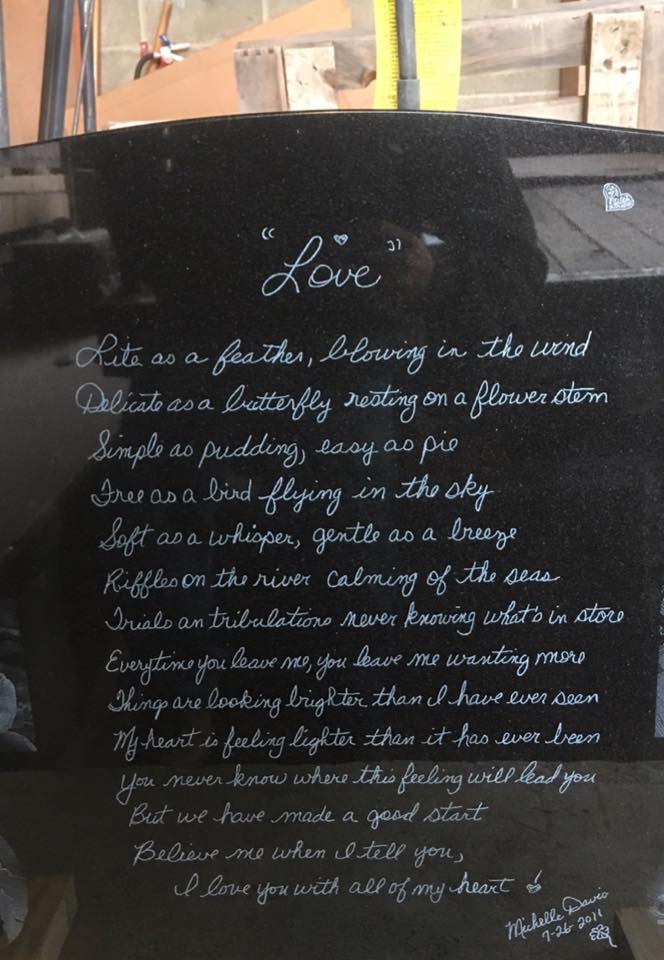 "Love"
Lite as a feather, blowing in the wind
Delicate as a butterfly resting on a flower stem
Simple as pudding, easy as pie
Free as a bird flying in the sky
Soft as a whisper, gentle as a breeze
Riffles on the river calming of the seas
Trials an tribulations never knowing what's in store
Everytime you leave me, you leave me wanting more
Things are looking brighter than I have ever seen
My heart is feeling lighter than it has ever been
You never know where this feeling will lead you
But we have made a good start
Believe me when I tell you,
I love you with all of my heart
Michelle Davis
7-26-2011